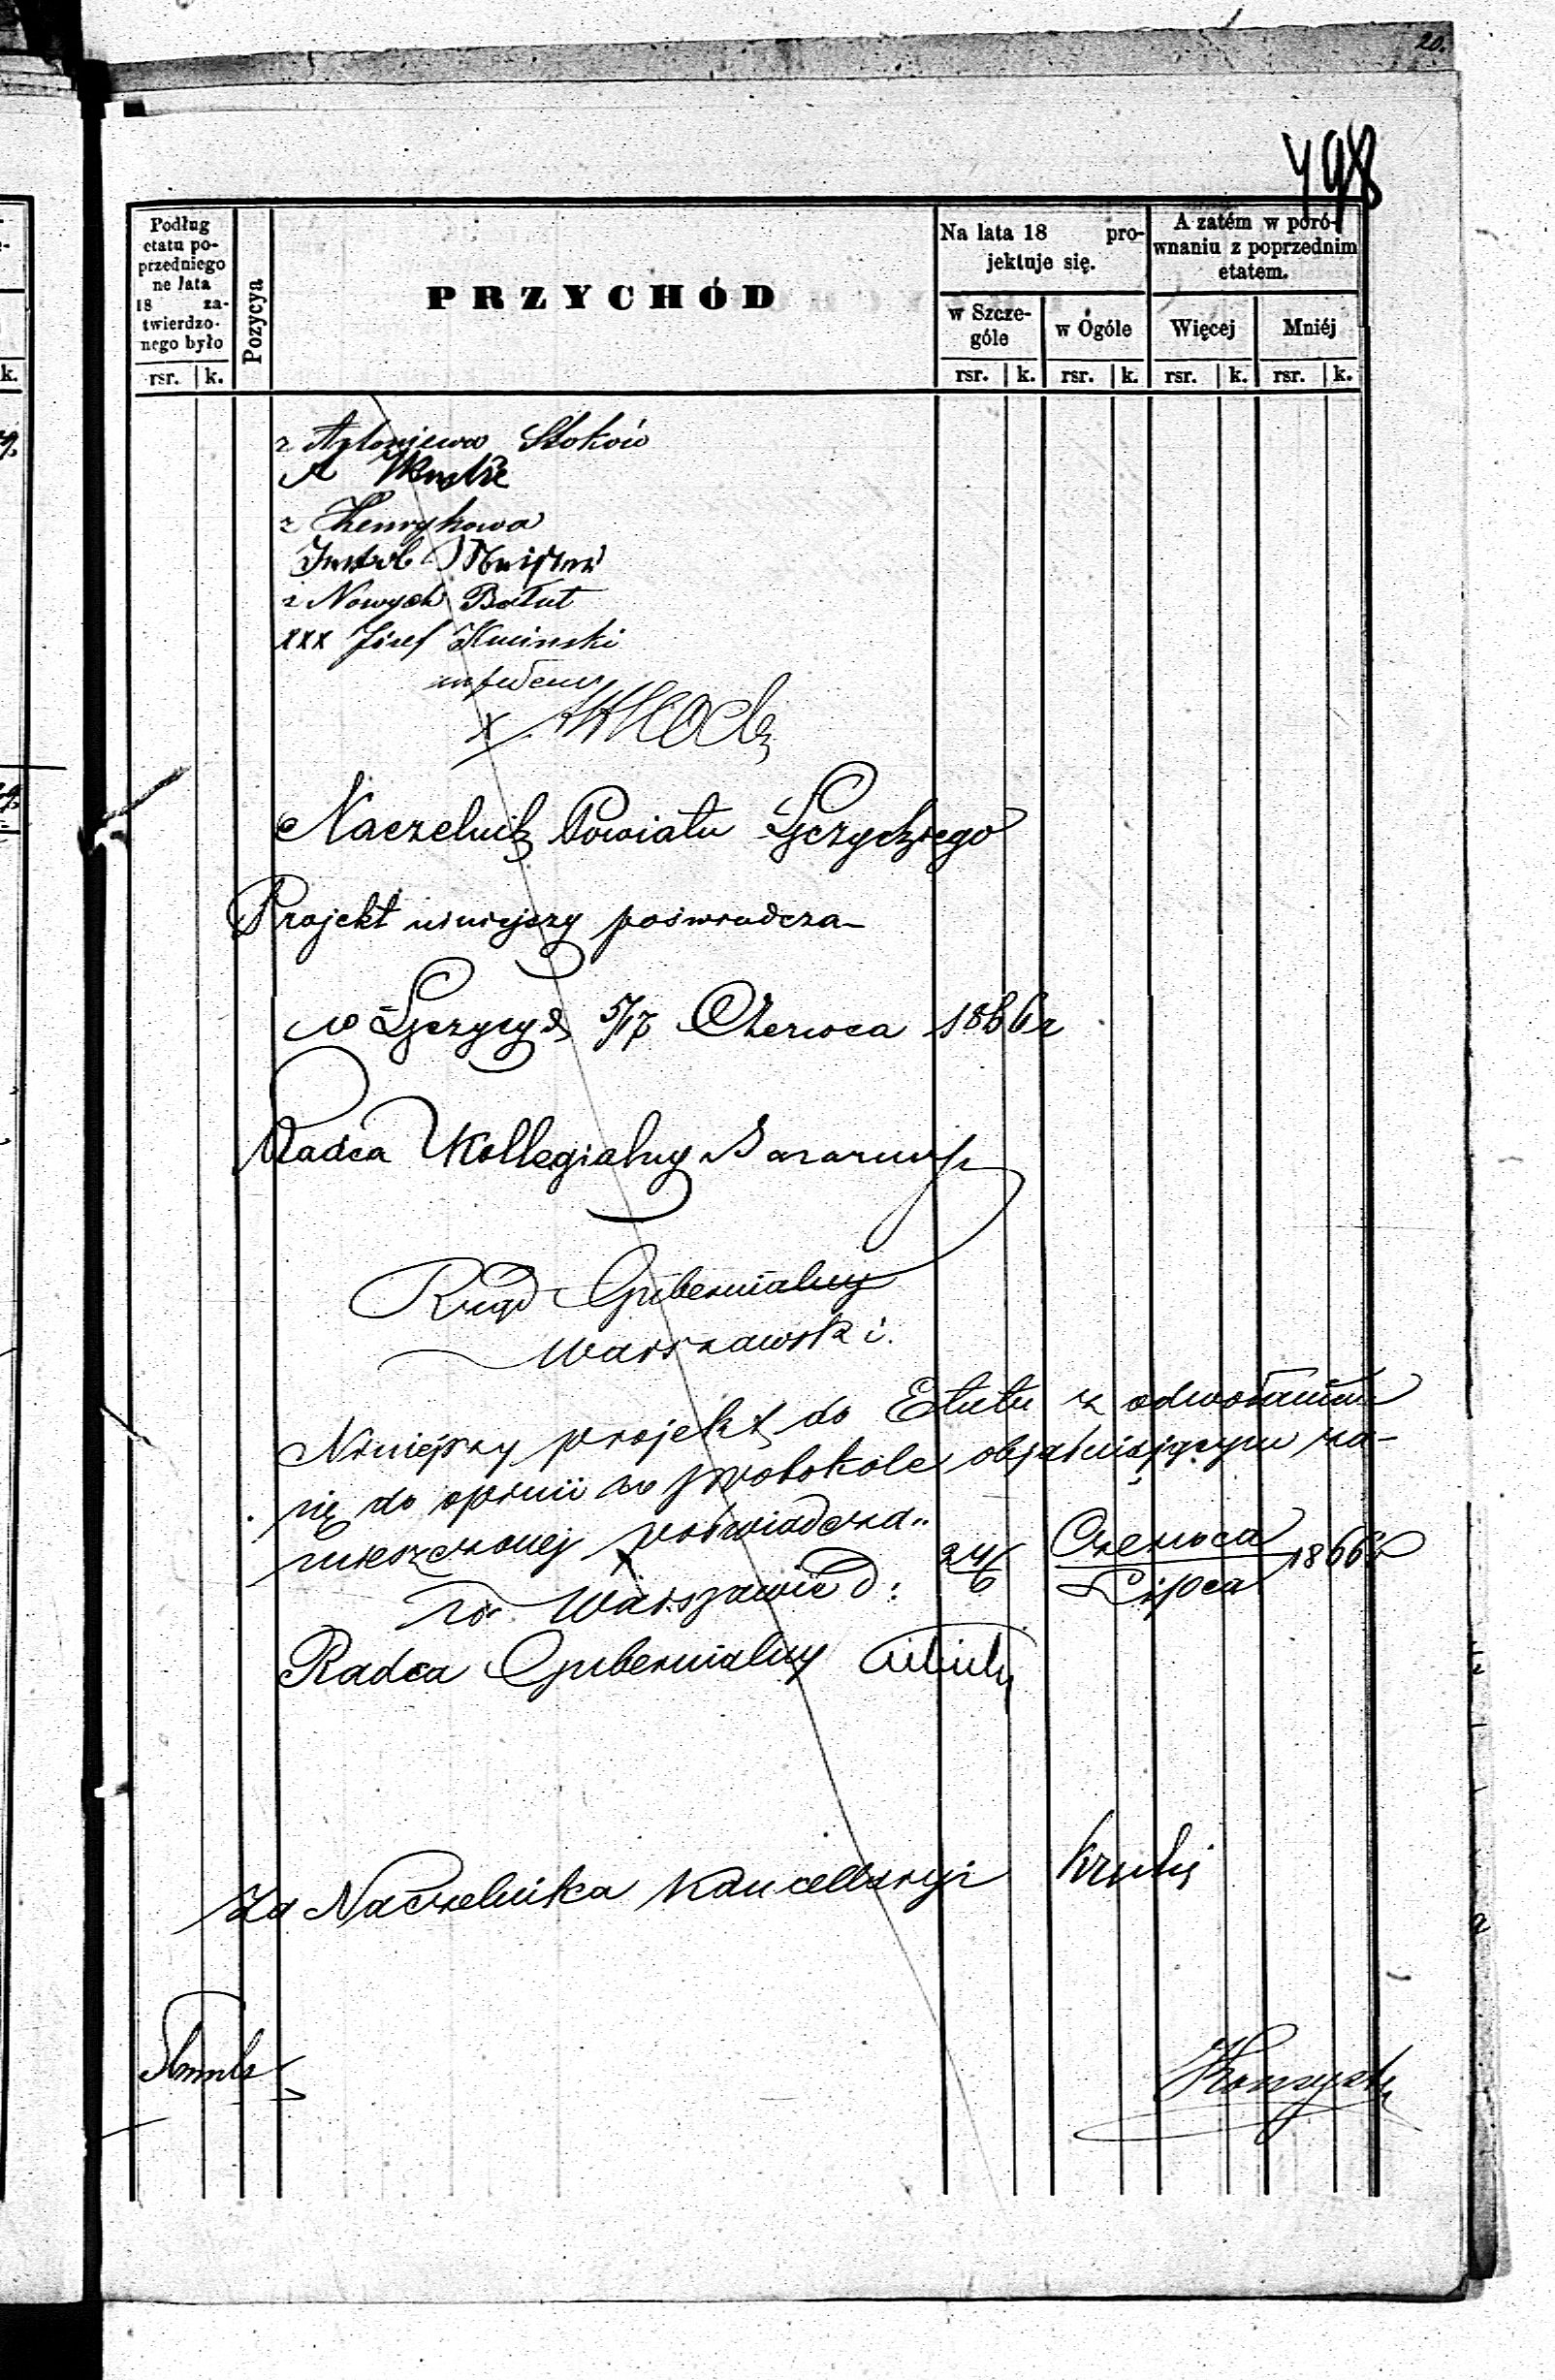 20.
498
Podług
etatu po-
przedniego
ne lata
18 za-
twierdzo-
nego było
rsr. k.
Pozycya
PRZYCHÓD
Na lata 18 pro-
jektuje się.
w Szcze-
góle
rsr. k.
w Ogóle
rsr. k.
A zatém w poró-
wnaniu z poprzednim
etatem.
Więcej
rsr. k.
Mniéj
rsr. k.
z Antoniewa Stoków
A
z Henrykowa
z Nowych Bałut
xxx Józef Kucinski
Naczelnik Powiatu Łęczyckiego
Projekt niniejszy poświadcza
w Łęczycy d 5/17 Czerwca 1866 r
Radca Kollegialny
Rząd Gubernialny
Warszawski.
Niniejszy projekt do Etatu z odwołaniem
się do opinii w protokole objaśniającym za-
mieszczonej poświadcza
w Warszawie d: 24/6 Czerwca/Lipca 1866 r
Radca Gubernialny
Za Naczelnika Kancellaryi